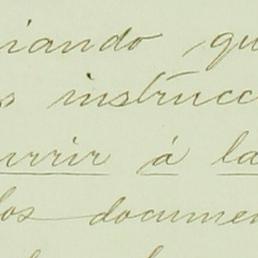 iando qu
s instrucc
urrir á la
los documen